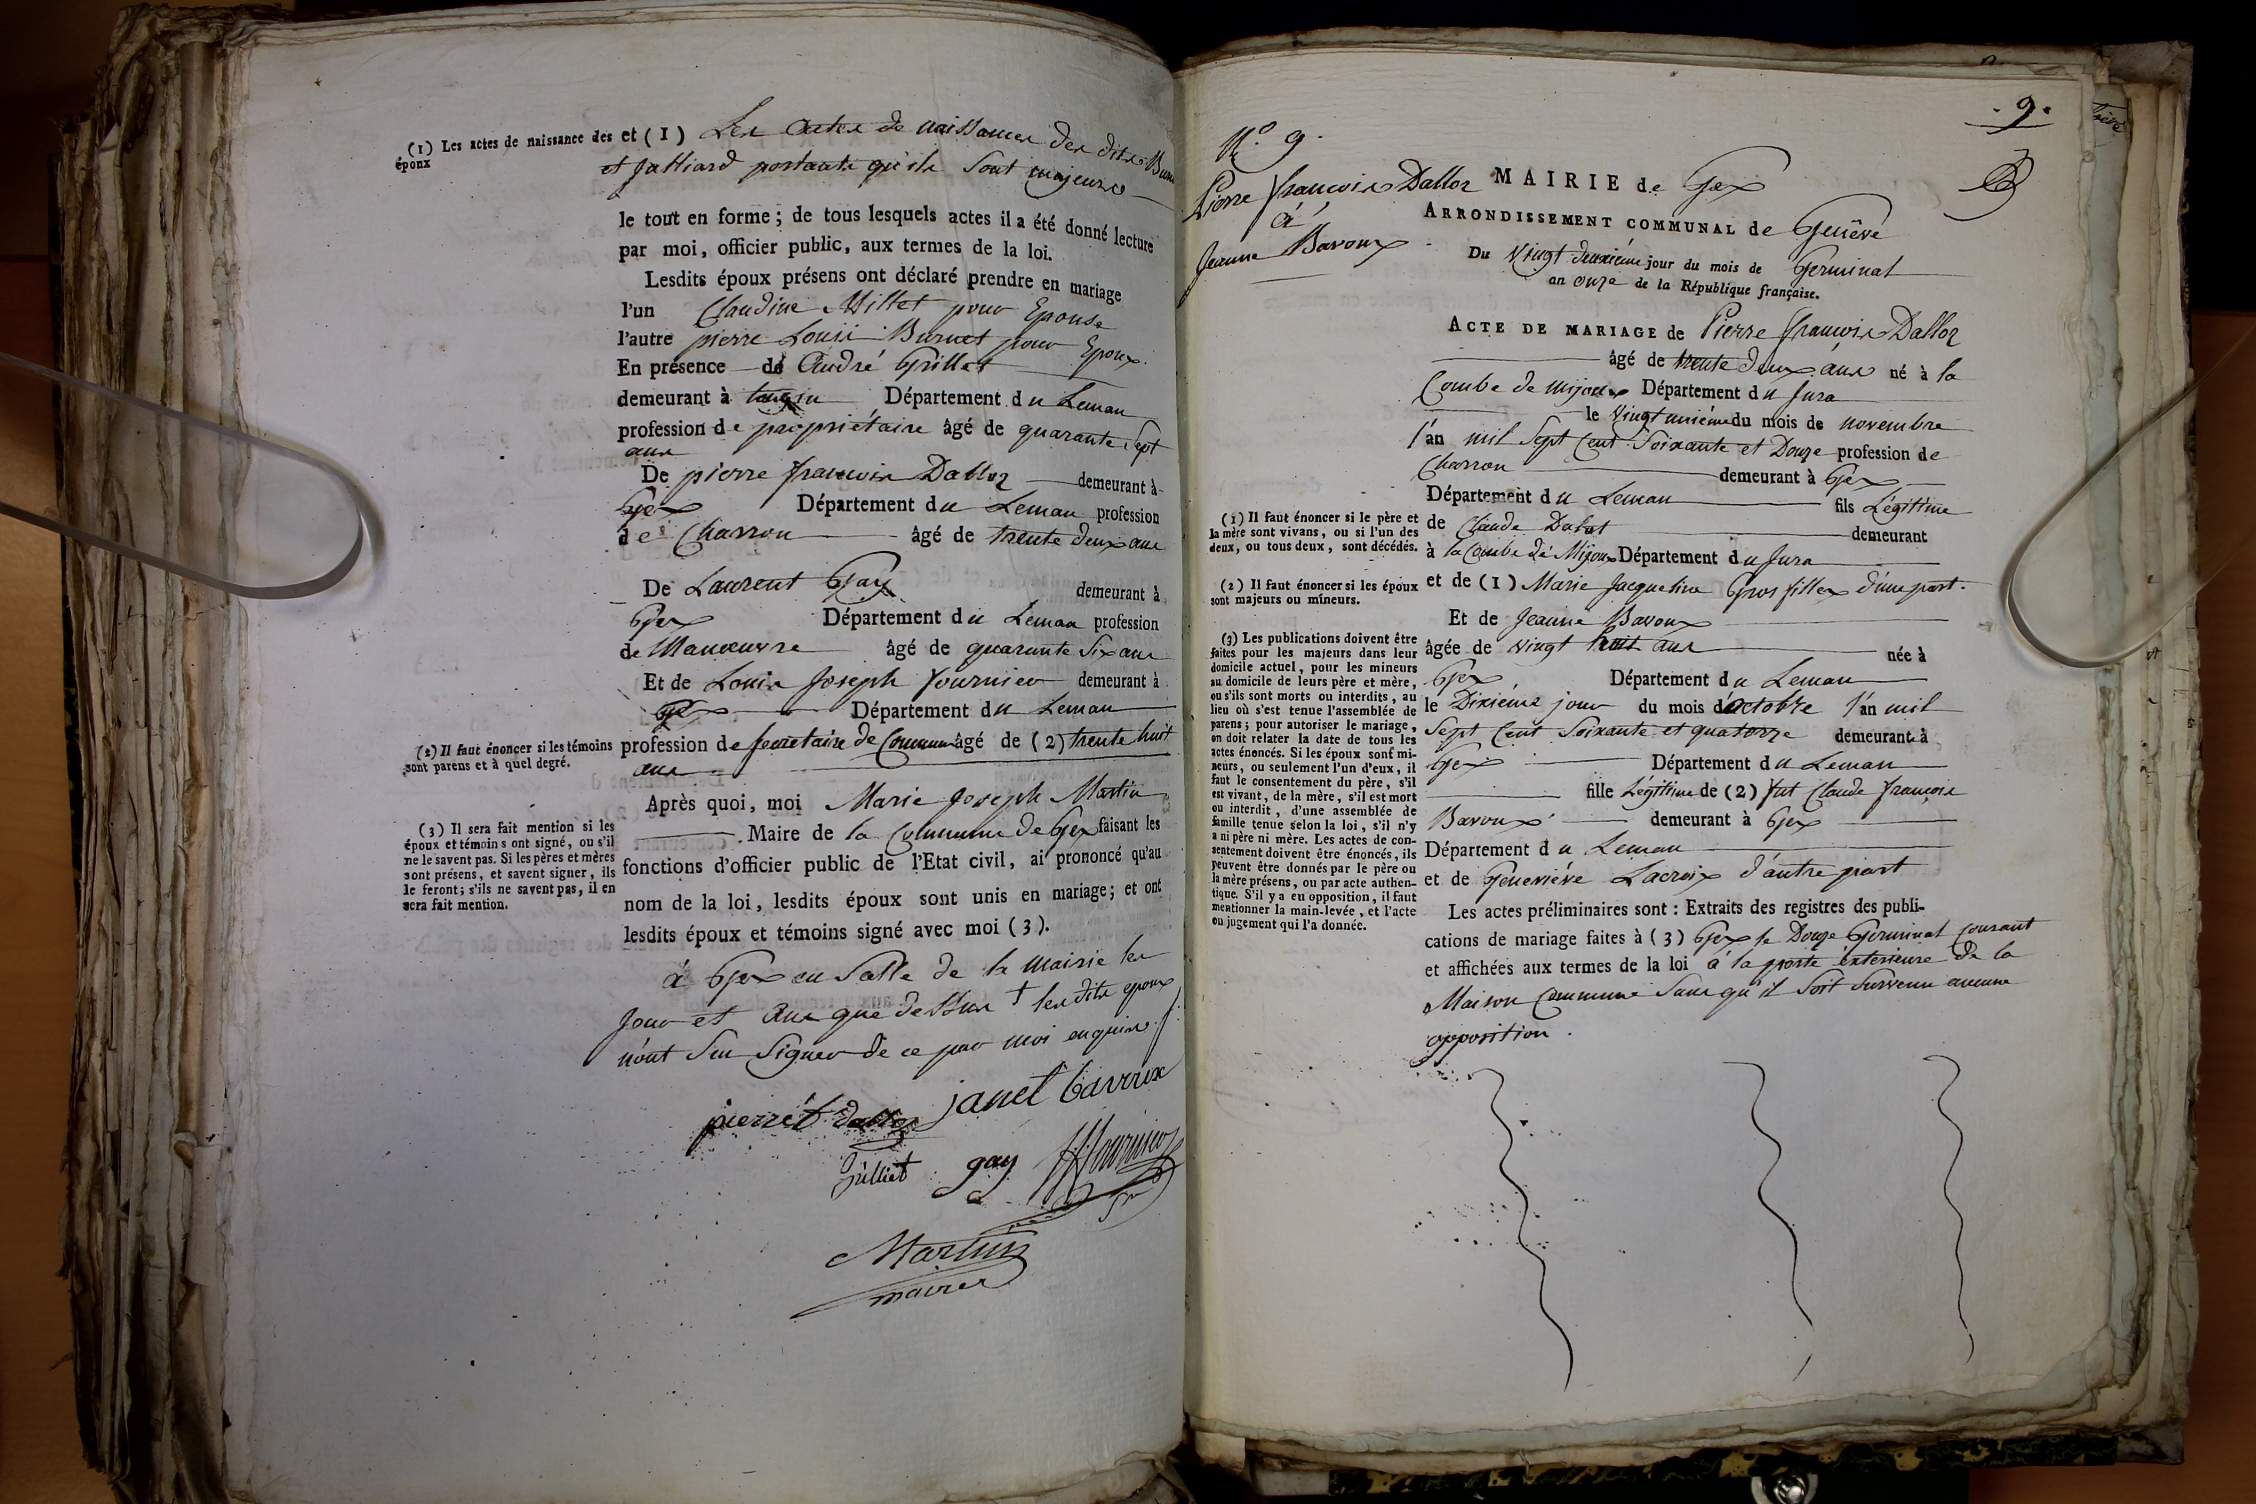 (1) Les actes de naissance des époux
et (1) Les Actes de naissances des dits Burn
et Julliard portants qu'ils sont majeurs
le tout en forme ; de tous lesquels actes il a été donné lecture
par moi, officier public, aux termes de la loi.
Lesdits époux présens ont déclaré prendre en mariage
l'un Claudine Millet pour Epouse
l'autre pierre Louis Burnet pour Epoux.
En présence de André Grillet
demeurant à Département du Leman
profession de propriétaire âgé de quarante Sept
ans
De pierre françois Dalloz demeurant à
Gex Département du Leman profession
de Charron âgé de trente deux ans
De Laurent Gay demeurant à
Gex Département du Leman profession
de Manoeuvre âgé de quarante Six ans
Et de Louis Joseph fournier demeurant à
Gex Département du Leman
(2) Il faut énoncer si les témoins
sont parens et à quel degré.
profession de secretaire de Commune âgé de (2) trente huit
ans
Après quoi, moi Marie Joseph Martin
Maire de la Commune de Gex faisant les
(3) Il sera fait mention si les
époux et témoins ont signé, ou s'il
ne le savent pas. Si les pères et mères
sont présens, et savent signer, ils
le feront ; s'ils ne savent pas, il en
sera fait mention.
fonctions d'officier public de l'Etat civil, ai prononcé qu'au
nom de la loi, lesdits époux sont unis en mariage ; et ont
lesdits époux et témoins signé avec moi (3).
à Gex en Salle de la mairie les
jour et ans que dessus † les dits epoux
n'ont Su Signer de ce par moi enquis
pierre f dalloz janet bavoux
Grilliet gay Fournier
Martin
maire
.9.
N.o 9.
Pierre françois Dalloz
à
Jeanne Bavoux
MAIRIE de Gex
ARRONDISSEMENT COMMUNAL de Genève
Du Vingt deuxième jour du mois de Germinal
an onze de la République française.
ACTE DE MARIAGE de Pierre françois Dalloz
âgé de trente deux ans né à la
Combe de mijoux Département du Jura
le vingt unième du mois de novembre
l'an mil Sept Cent Soixante et Douze profession de
Charron demeurant à Gex
Département du Leman fils Légitime
(1) Il faut énoncer si le père et
la mère sont vivans, ou si l'un des
deux, ou tous deux, sont décédés.
de Claude demeurant
à la Combe de Mijoux Département du Jura
(2) Il faut énoncer si les époux
sont majeurs ou mineurs.
et de (1) Marie Jacqueline Gros fillex d'une part.
Et de Jeanne Bavoux
(3) Les publications doivent être
faites pour les majeurs dans leur
domicile actuel, pour les mineurs
au domicile de leurs père et mère,
ou s'ils sont morts ou interdits, au
lieu où s'est tenue l'assemblée de
parens ; pour autoriser le mariage,
on doit relater la date de tous les
actes énoncés. Si les époux sont mi-
neurs, ou seulement l'un d'eux, il
faut le consentement du père, s'il
est vivant, de la mère, s'il est mort
ou interdit, d'une assemblée de
famille tenue selon la loi, s'il n'y
a ni père ni mère. Les actes de con-
sentement doivent être énoncés, ils
peuvent être donnés par le père ou
la mère présens, ou par acte authen-
tique. S'il y a eu opposition, il faut
mentionner la main-levée, et l'acte
ou jugement qui l'a donnée.
âgée de vingt huit ans née à
Gex Département du Leman
le Dixième jour du mois d'octobre l'an mil
Sept Cent Soixante et quatorze demeurant à
Gex Département du Leman
fille Légitime de (2) fut Claude françois
Bavoux demeurant à Gex
Département du Leman
et de Geneviève Lacroix d'autre part
Les actes préliminaires sont : Extraits des registres des publi-
cations de mariage faites à (3) Gex le Douze Germinal courant
et affichées aux termes de la loi à la porte extérieure de la
Maison Commune Sans qu'il Soit Survenu aucune
opposition.